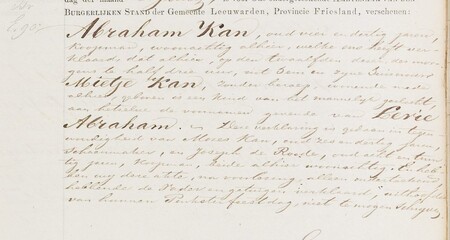 dag der maand
BURGERLIJKEN STAND der Gemeente Leeuwarden, Provincie Friesland, verschenen:
Abraham Kan, oud vier en dertig jaren,
Koopman, woonachtig alhier, welke ons heeft ver-
klaard, dat alhier, op den twaalfden dezer des mor-
gens te half drie ure, uit hem en zyne huisvrouw
Mietje Kan, zonder beroep, wonende mede
alhier, geboren is een kind van het mannelijk geslacht,
aan hetwelk de voornamen gevende van Levie
Abraham. Deze verklaring is gedaan in tegen-
woordigheid van Mozes Kan, oud zes en dertig jaren,
en Joseph de oud acht en twin-
tig jaren, Koopman, beide alhier woonachtig. En heb-
ben wy deze acte, na voorlezing, alleen onderteekend,
hebbende de Vader en getuigen verklaard, uithoofde
van hunnen feestdag, niet te mogen schryven